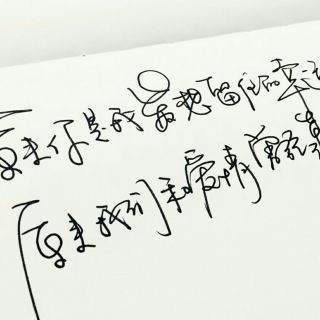 原来你是我最想留住的幸运
原来我们和爱情曾经是